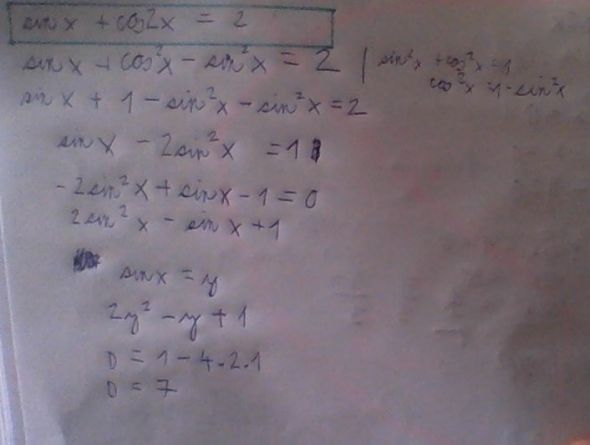 sin x + cos2x = 2
sin x + cos²x - sin²x = 2 | sin²x + cos²x = 1
cos²x = 1 - sin²x
sin x + 1 - sin²x - sin²x = 2
sin x - 2sin²x = 1
-2sin²x + sin x - 1 = 0
2sin²x - sin x + 1
sin x = y
2y² - y + 1
D = 1 - 4·2·1
D = 7